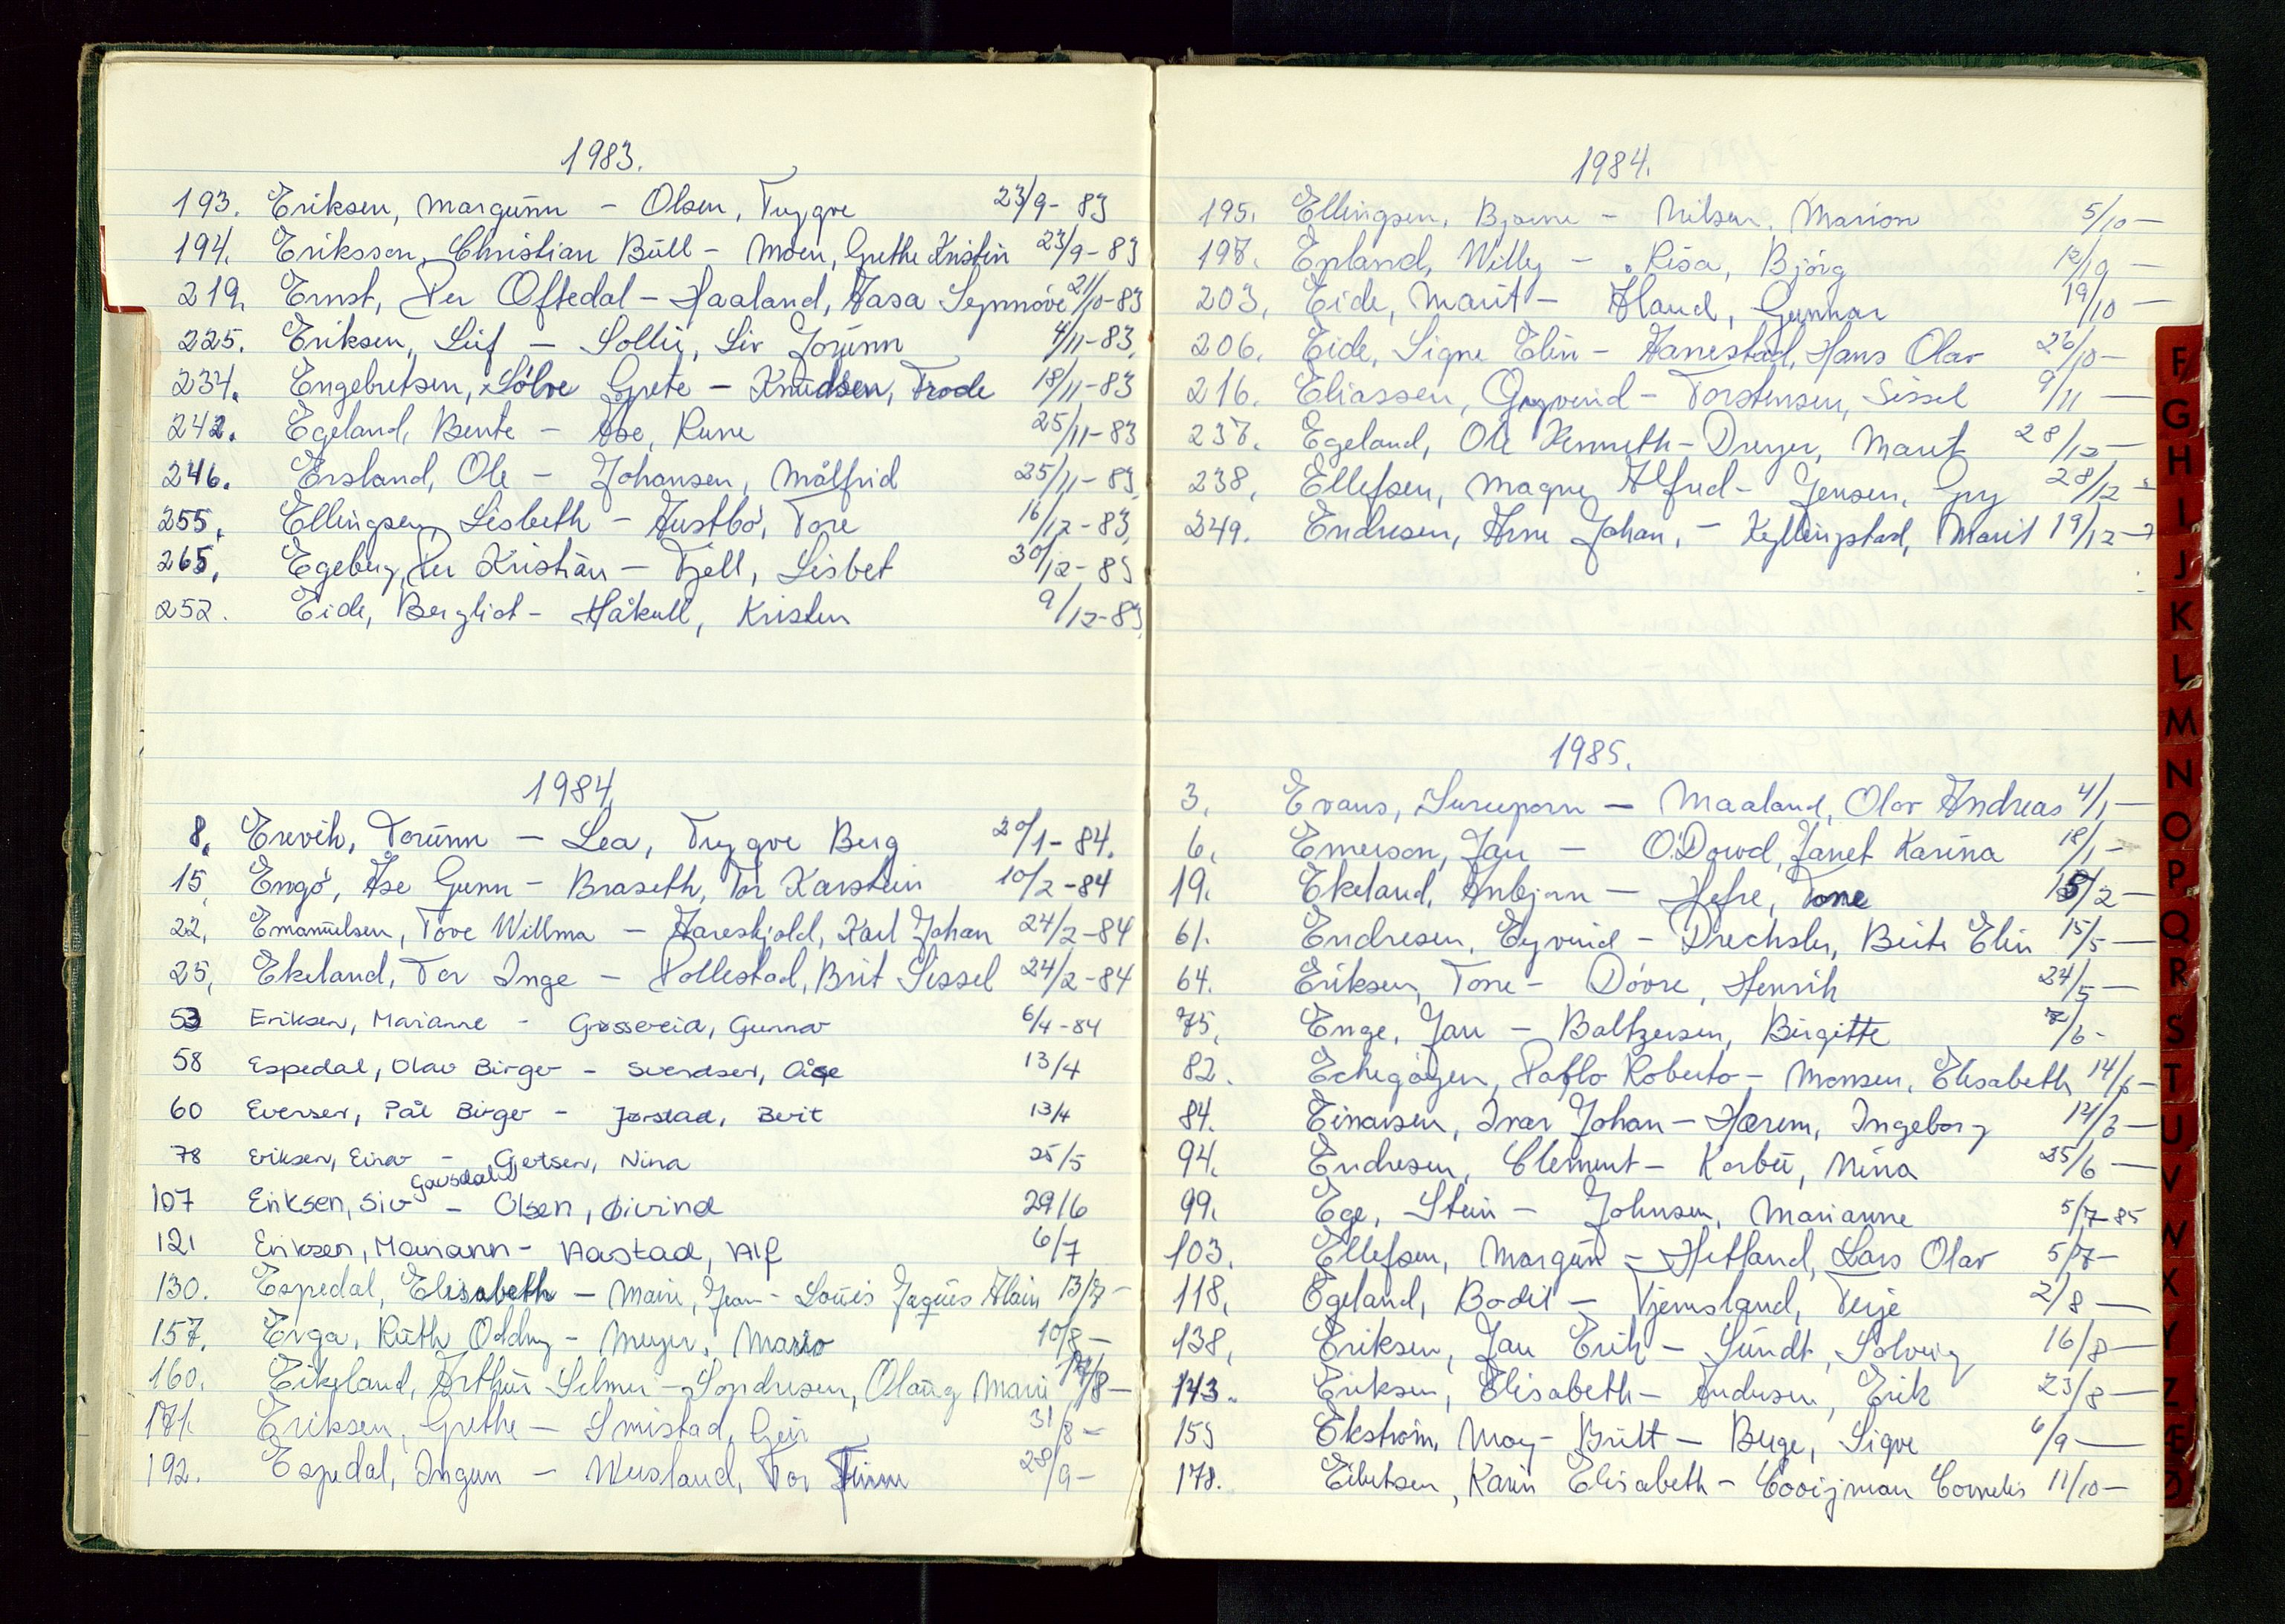 1983.
193. Eriksen, Margunn - Olsen, Trygve 23/9-83
194. Eriksson, Christian Bull - Moen, Grethe Kristin 23/9-83
219. Ernst, Per Oftedal - Haaland, Aasa Synnøve 21/10-83
225. Eriksen, Leif - Solli, Liv Jorunn 4/11-83.
234. Engebretsen, Sólve Grete - Knudsen, Frode 18/11-83
242. Egeland, Bente - Åse, Rune 25/11-83
246. Ersland, Ole - Johansen, Målfrid 25/11-83
255. Ellingsen, Lisbeth - Austbó, Tore 16/12-83.
265. Egeberg, Per Kristian - Fjell, Lisbet 30/12-83
252. Eide, Bergliot - Håkull, Kristen 9/12-83
1984
8. Erevik, Torunn - Lea, Trygve Berg 20/1-84.
15. Engó, Åse Gunn - Braseth, Tor Karstein 10/2-84
22. Emanuelsen, Tove Willma - Hareskjold, Karl Johan 24/2-84
25, Ekeland, Tor Inge - Pollestad, Brit Sissel 24/2-84
53 Eriksen, Marianne - Grøsveid, Gunnar 6/4-84
58 Espedal, Olav Birger - Svendsen, Åse 13/4
60 Eversen, Pål Birger - Jørstad, Berit 13/4
78 Eriksen, Einar - Gjertsen, Nina 25/5
Gausdal
107 Eriksen, Siv - Olsen, Øivind 29/6
121 Eriksen, Mariann - Aastad, Alf 6/7
130. Espedal, Elisabeth - Marie, Jean-Louis Jaques Alain 13/7 -
157. Erga, Ruth Oddny - Meyer, Mario 10/8 -
160. Eikeland, Arthur Selmer - Sondresen, Olaug Marie 17/8 -
171. Eriksen, Grethe - Smistad, Geir 31/8 -
192. Espedal, Ingunn - Weisland, Tor Finn 28/9 -
1984.
195. Ellingsen, Bjarne - Nilsen, Marion 5/10 -
197. Enland, Willy - Risa, Bjórg 12/9 -
203. Eide, Marit - Aland, Gunnar 19/10 -
206. Eide, Signe Elin - Hanestad, Hans Olav 26/10 -
216. Eliassen, Øyvind - Torstensen, Sissel 9/11 -
237. Egeland, Ole Kenneth - Dreyer, Marit 28/12 -
238. Ellefsen, Magne Alfred - Jensen, Gry 28/12 -
249. Endresen, Arne Johan, - Kyllingstad, Marit 19/12 -
1985.
3. Evans, Sureeporn - Maaland, Olav Andreas 4/1 -
6. Emerson, Jan - O'Dowd, Janet Karina 18/1 -
19. Ekeland, Anbjørn - Hefre, Tone 15/2 -
61. Endresen, Eyvind - Drechsler, Beite Elin 15/5 -
64. Eriksen, Tone - Dóvre, Henrik 24/5 -
75. Enge, Jan - Baltzersen, Birgitte 7/6 -
82. Echegóyen, Pablo Roberto - Monsen, Elisabeth 14/6 -
84. Einarsen, Ivar Johan - Hærem, Ingeborg 14/6 -
94. Endresen, Clement - Korbu, Nina 25/6 -
99. Ege, Stein - Johnsen, Marianne 5/7-85
103. Ellefsen, Margun - Hetland, Lars Olav 5/7 -
118. Egeland, Bodil - Tjemsland, Terje 2/8 -
138. Eriksen, Jan Erik - Sundt, Solveig 16/8 -
143. Eriksen, Elisabeth - Andersen, Erik 23/8 -
155 Ekstróm, May-Britt - Berge, Sigve 6/9 -
178. Eilertsen, Karin Elisabeth - Cooijman Cornelis 11/10 -
F
G
H
I
J
K
L
M
N
O
P
Q
R
S
T
U
V
W
X
Y
Z
Æ
Ø